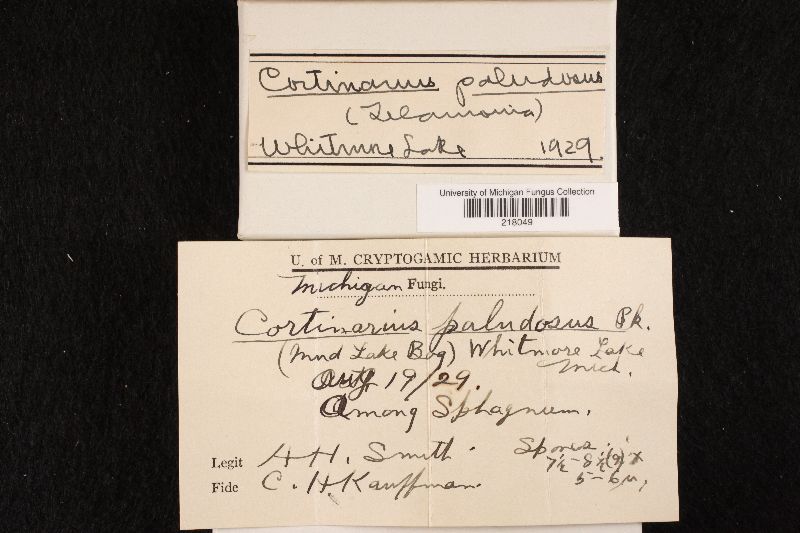 Cortinarius paludosus
(Telamonia)
Whitmore Lake 1929.
University of Michigan Fungus Collection
218049
U. of M. CRYPTOGAMIC HERBARIUM
Michigan Fungi.
Cortinarius paludosus Pk.
(Mud Lake Bog) Whitmore Lake
Mich.
Aug 19/29.
Among Sphagnum.
Legit A H. Smith.
Spores:
7½-8½(9) x
5-6µ,
Fide C. H. Kauffman.